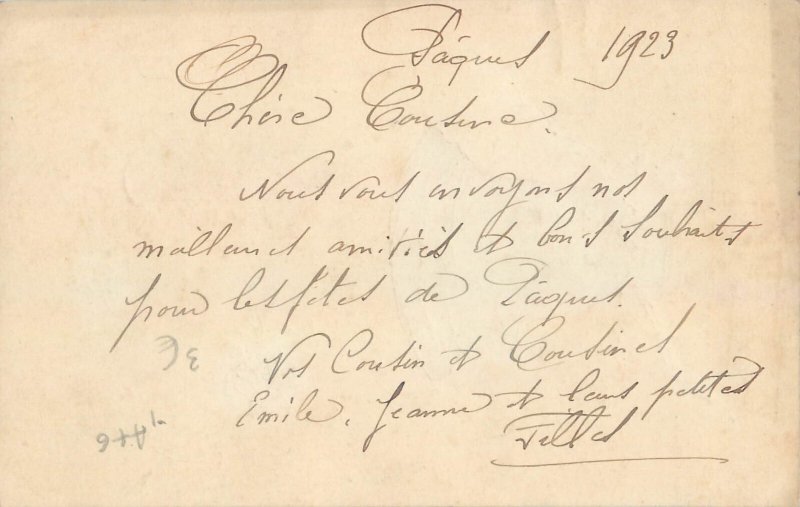 Pâques 1923
Chère Cousine.
Nous vous envoyons nos
meilleures amitiés et bons souhaits
pour les fêtes de Pâques.
Vos Cousin et Cousines
Emile, Jeanne et leurs petites
Filles
3€